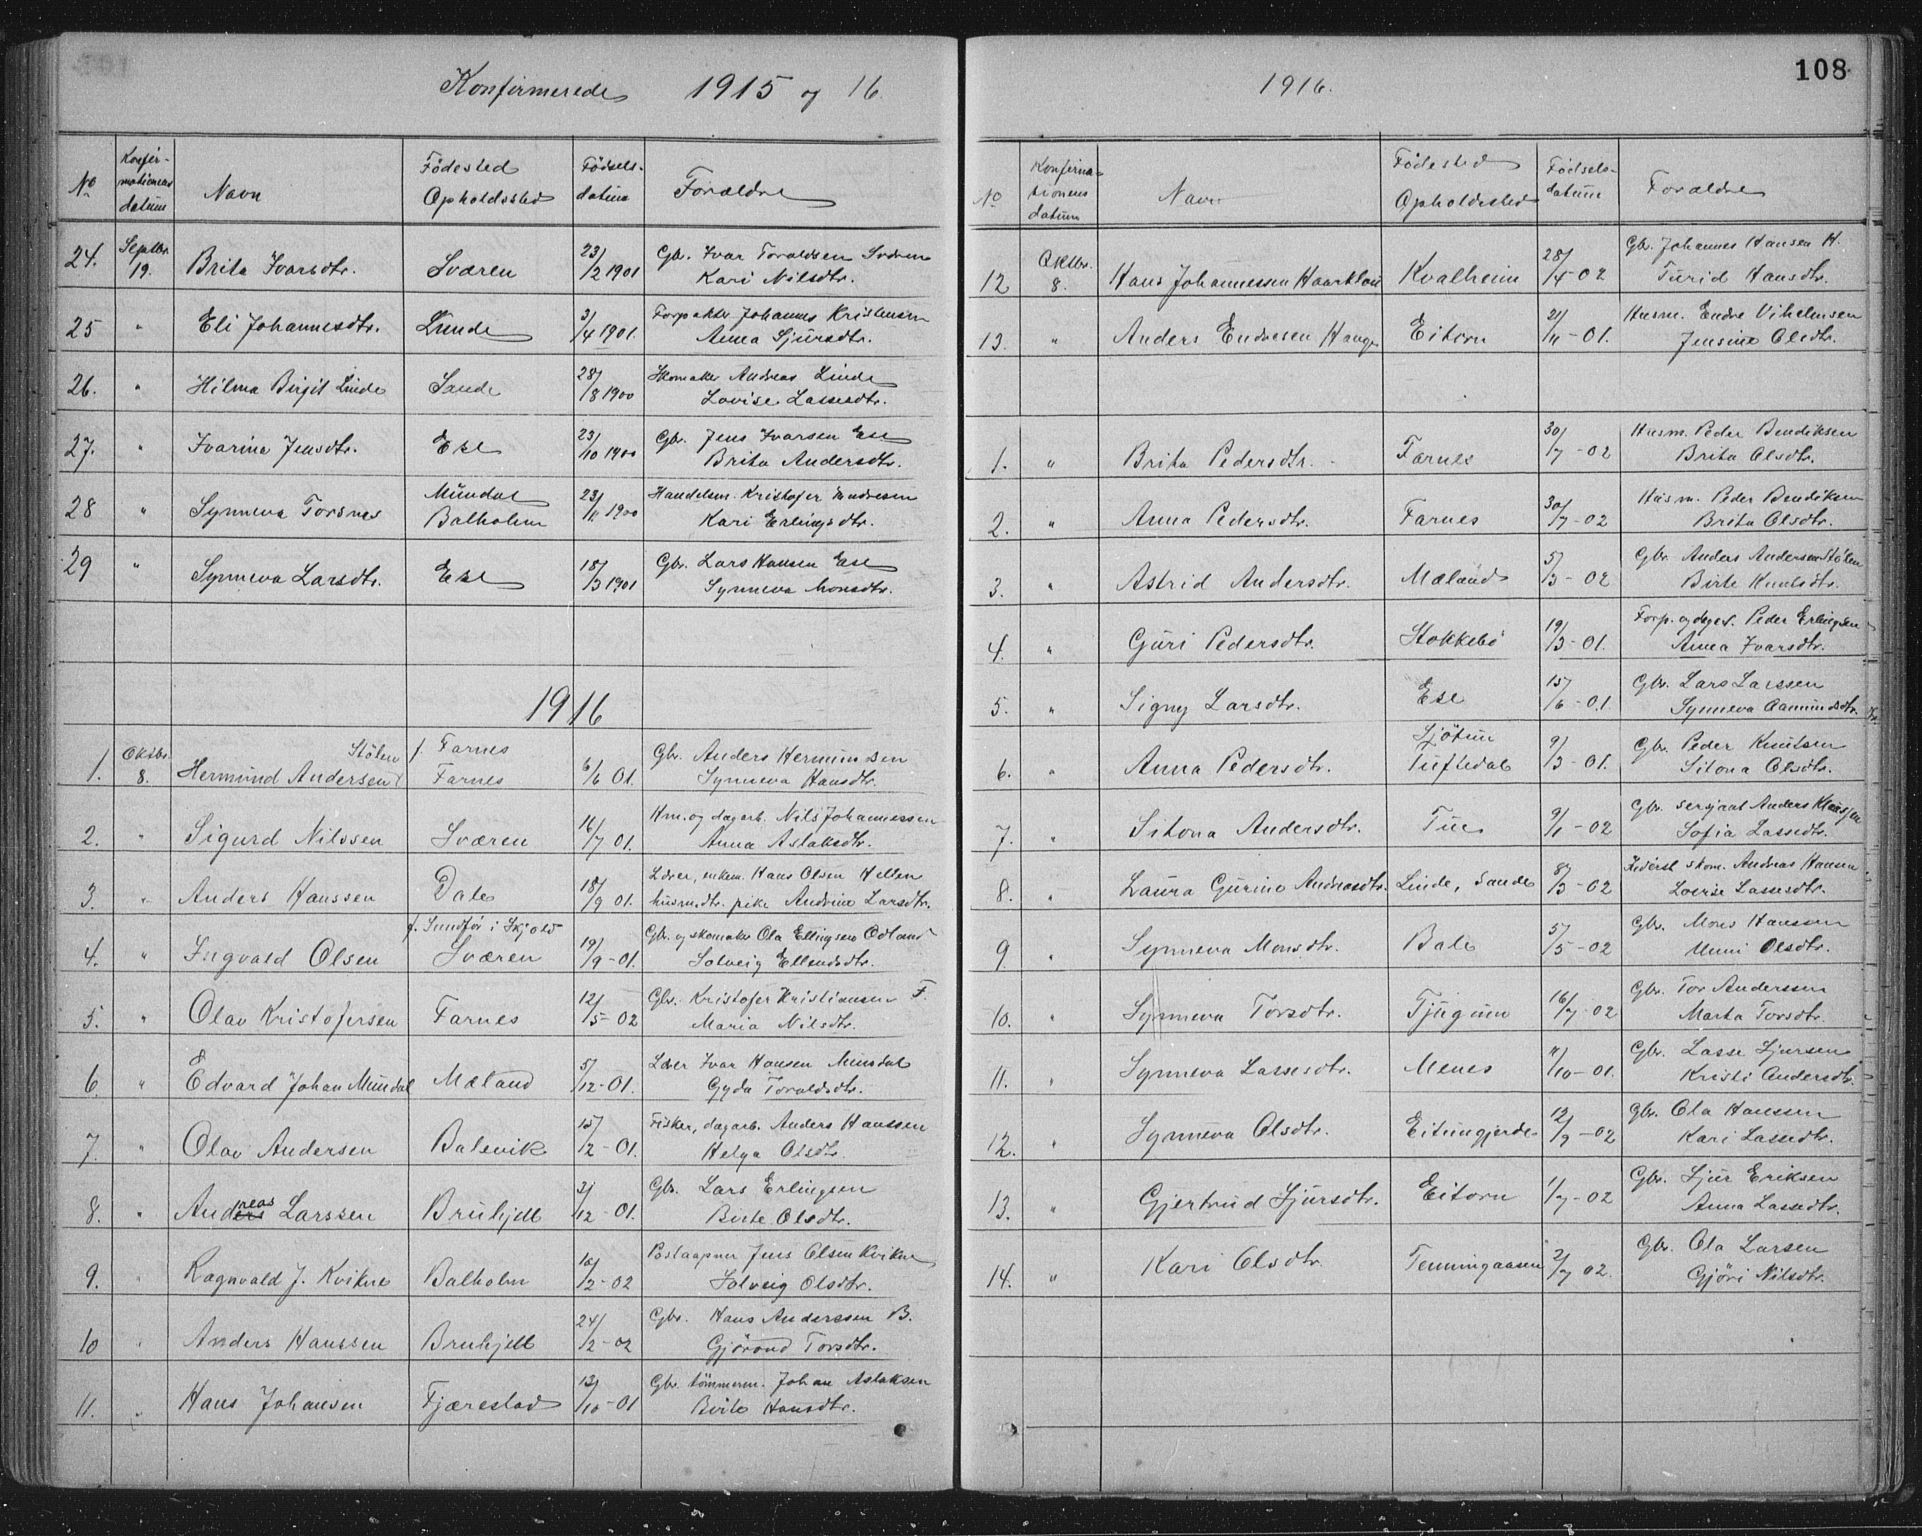 Konfirmerede 1915 og 16.
No Konfirmationens datum Navn Fødested Opholdssted Fødselsdatum Forældre
24. Septbr. 19. Brita Ivarsdtr. Sværen 23/2 1901 Gbr. Ivar Toraldsen Sværen
Kari Nilsdtr.
25 " Eli Johannesdtr. Linde 3/4 1901. Forpakter Johannes Kristensen
Anna Sjursdtr.
26. " Hilma Birgit Linde Sande 28/8 1900 Skomaker Andreas Linde
Lovise Lassesdtr.
27. " Ivarina Jensdtr. Ese 23/10 1900 Gbr. Jens Ivarsen Ese
Brita Andersdtr.
28 " Synneva Torsnes Mundal Balholm 23/11 1900 Handelsm. Kristofer Endresen
Kari Erlingsdtr.
29 " Synneva Larsdtr. Ese 18/3 1901 Gbr. Lars Hansen Ese
Synneva Monsdtr.
1916
1. Oktbr. 8. Hermund Andersen Stölen f. Farnes Farnes 6/6 01. Gbr. Anders Hermundsen
Synneva Hansdtr.
2. " Sigurd Nilssen Sværen 16/7 01. Hm. og dagarb. Nils Johannessen
Anna Aslaksdtr.
3. " Anders Hanssen Dale 18/9 01. Lærer, enkem. Hans Olsen Hellen
husmdtr. pike Andrine Larsdtr.
4. " Ingvald Olsen f. Sundför i Skjold Sværen 19/9-01. Gbr. og skomaker Ola Ellingsen Ödland
Solveig Ellendsdtr.
5. " Olav Kristofersen Farnes 12/5-02 Gbr. Kristofer Kristiansen F.
Maria Nilsdtr.
6 " Edvard Johan Mundal Mæland 5/12-01. Lærer Ivar Hansen Mundal
Gyda Toraldsdtr.
7. " Olav Andersen Balevik 15/2-01. Fisker, dagarb. Anders Hanssen
Helga Olsdtr.
8. " Andreas Larssen Bruhjell 31/12-01. Gbr. Lars Erlingsen
Birte Olsdtr.
9. " Ragnvald J. Kvikne Balholm 10/2-02 Postaapner Jens Olsen Kvikne
Solveig Olsdtr.
10 " Anders Hanssen Bruhjell 24/2-02 Gbr. Hans Anderssen B.
Gjörond Torsdtr.
11. " Hans Johansen Fjærestad 13/10-01 Gbr. tömmerm. Johan Aslaksen
Birte Hansdtr.
1916.
108
No Konfirmationens datum Navn Fødested Opholdssted Fødselsdatum Forældre
12 Oktbr. 8. Hans Johannessen Haarklau Kvalheim 28/4-02 Gbr. Johannes Hansen H.
Turid Hansdtr.
13. " Anders Endresen Hauge Eitorn 21/11-01. Husm. Endre Vilhelmsen
Jensine Olsdtr.
1. " Brita Pedersdtr. Farnes 30/7-02 Husm. Peder Bendiksen
Brita Olsdtr.
2. " Anna Pedersdtr. Farnes 30/7-02 Husm. Peder Bendiksen
Brita Olsdtr.
3. " Astrid Andersdtr. Mæland 5/3-02 Gbr. Anders Andersen Stölen
Birte Knutsdtr.
4. " Guri Pedersdtr. Stokkebö 19/3-01. Forp. og dagarb. Peder Erlingsen
Anna Ivarsdtr.
5. " Signy Larsdtr. Ese 15/6-01 Gbr. Lars Larssen
Synneva Aamundsdtr.
6. " Anna Pedersdtr. Sjötun Tuftedal 9/3-01. Gbr. Peder Knutsen
Sitona Olsdtr.
7. " Sitona Andersdtr. Tue 9/1-02 Gbr. sersjant Anders Klaussen
Sofia Lassedtr.
8. " Laura Gurine Andreasdtr. Linde, Sande 8/3-02 skom. Andreas Hansen
Lovise Lassesdtr.
9. " Synneva Monsdtr. Bale 5/5-02 Gbr. Mons Hanssen
Unni Olsdtr.
10. " Synneva Torsdtr. Tjugum 16/7-02 Gbr. Tor Anderssen
Marta Torsdtr.
11. " Synneva Lassesdtr. Menes 11/10-01. Gbr. Lasse Sjursen
Kristi Andersdtr.
12. " Synneva Olsdtr. Eitungjerde 12/9-02 Gbr. Ola Hanssen
Kari Lassedtr.
13. " Gjertrud Sjursdtr. Eitorn 1/7-02 Gbr. Sjur Eriksen
Anna Lassedtr.
14. " Kari Olsdtr. Tenningaasen 2/7 02. Gbr. Ola Larsen
Gjöri Nilsdtr.